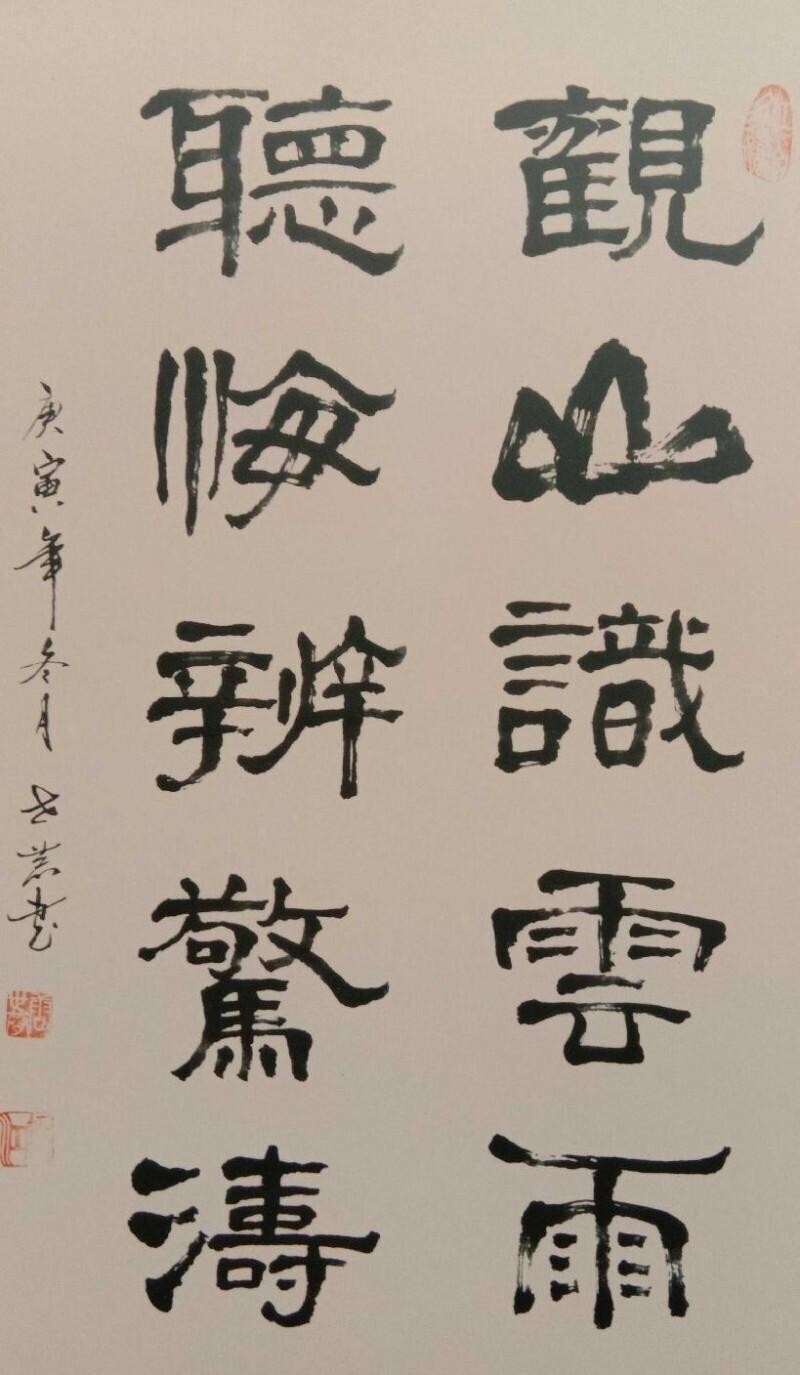 観山識雲雨
聽海辨驚濤
庚寅年冬月